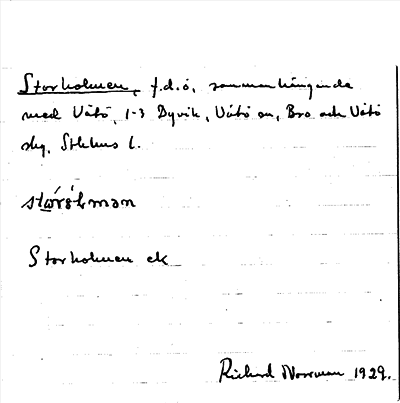 Storholmen, f.d.ö, sammanhängande
med Vätö, 1-3 Dyvik, Vätö sn, Bro och Vätö
skg, Sthlms l.
Storholmen ek
Richard Norrman 1929.